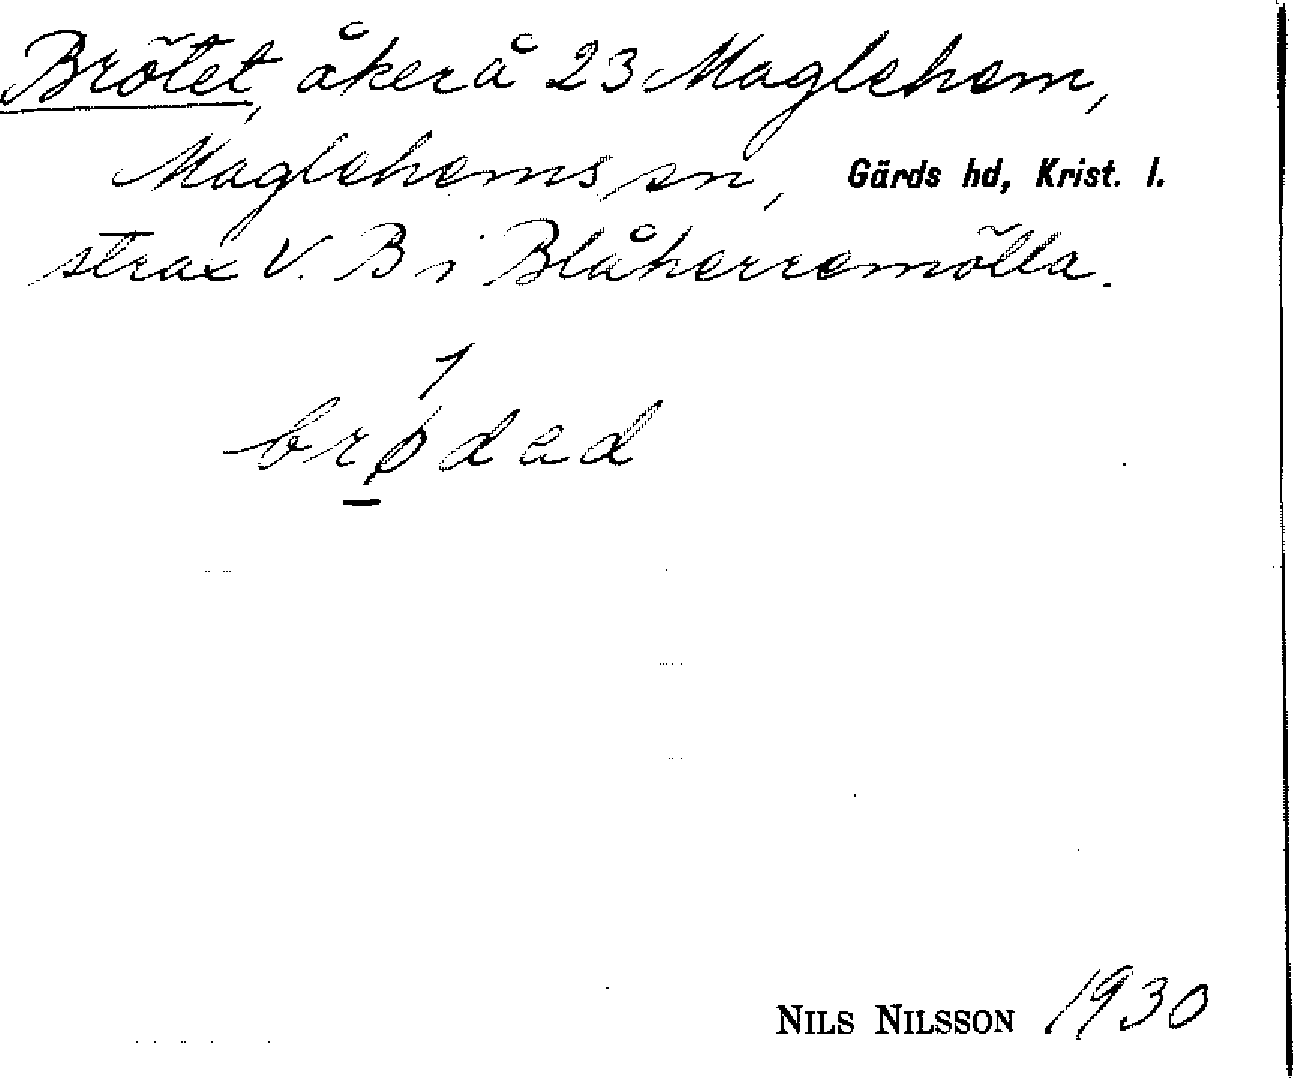 Brötet, åker å 23 Maglehem,
Maglehems sn, Gärds hd, Krist. l.
strax V. B i Blåherremölla.
brødad
NILS NILSSON 1930